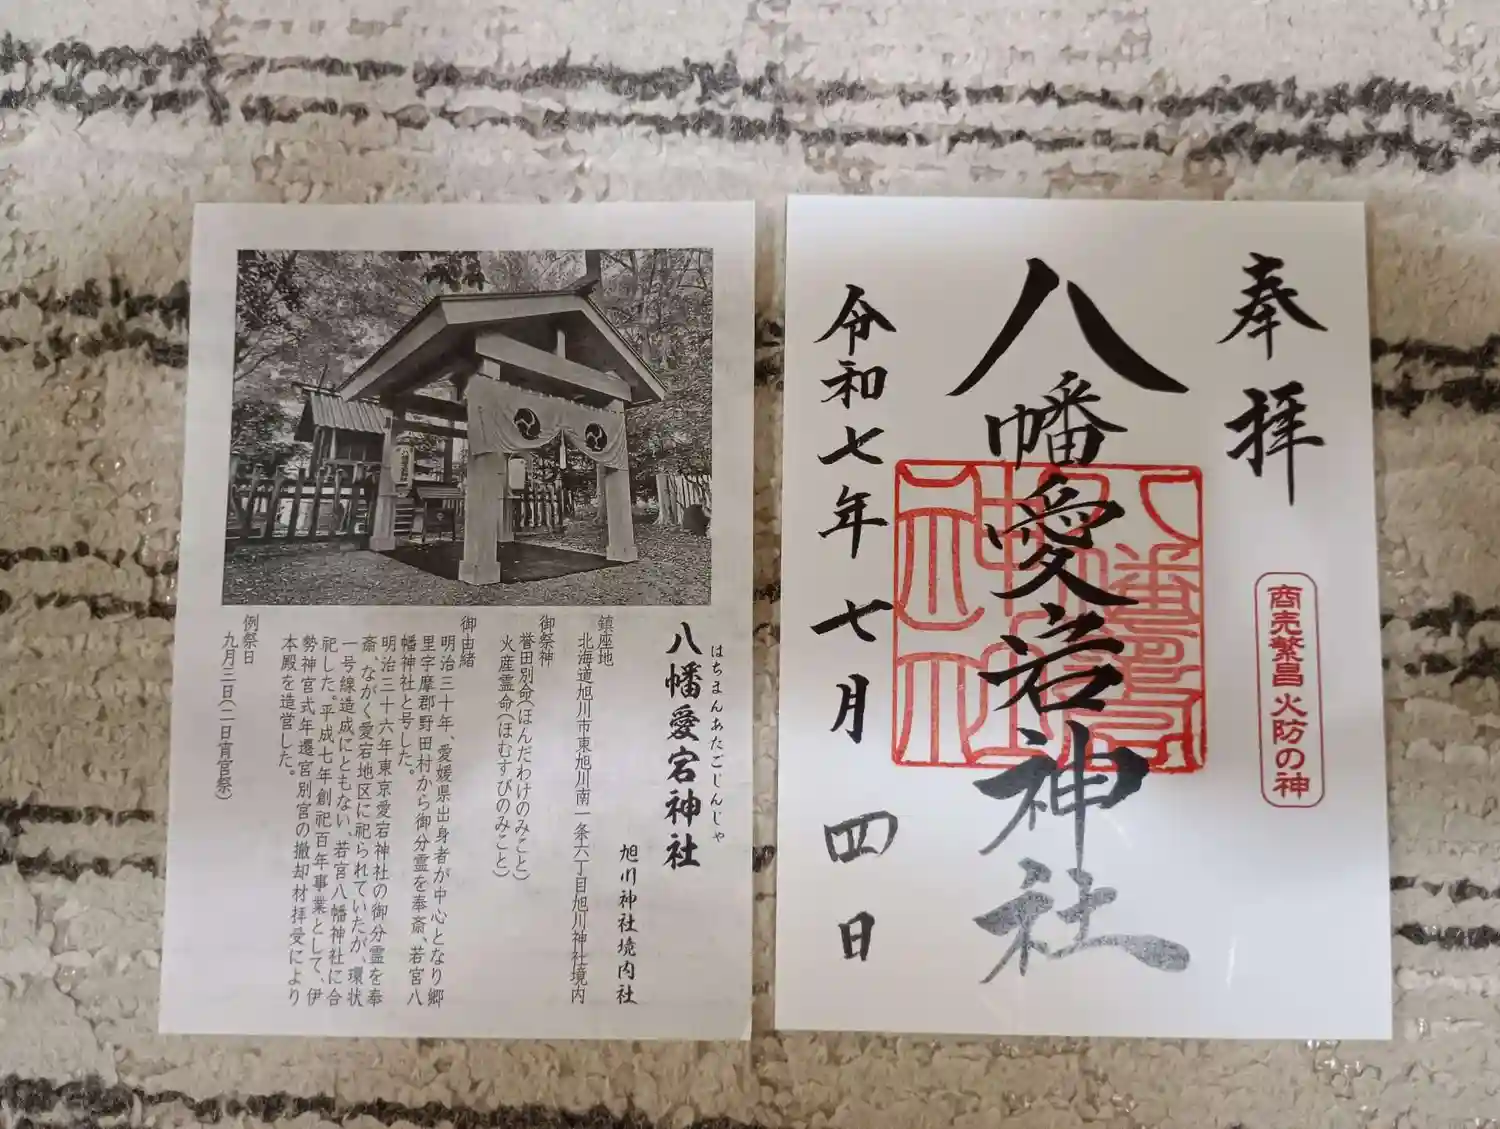 奉拝
商売繁昌 火防の神
八幡愛宕神社
八幡愛宕神社
令和七年七月四日
はちまんあたごじんじゃ
八幡愛宕神社
旭川神社境内社
鎮座地
北海道旭川市東旭川南一条六丁目旭川神社境内
御祭神
誉田別命(ほんだわけのみこと)
火産霊命(ほむすびのみこと)
御由緒
明治三十年、愛媛県出身者が中心となり郷
里宇摩郡野田村から御分霊を奉斎、若宮八
幡神社と号した。
明治三十六年東京愛宕神社の御分霊を奉
斎、ながく愛宕地区に祀られていたが、環状
一号線造成にともない、若宮八幡神社に合
祀した。平成七年創祀百年事業として、伊
勢神宮式年遷宮別宮の撤却材拝受により
本殿を造営した。
例祭日
九月三日(二日宵宮祭)